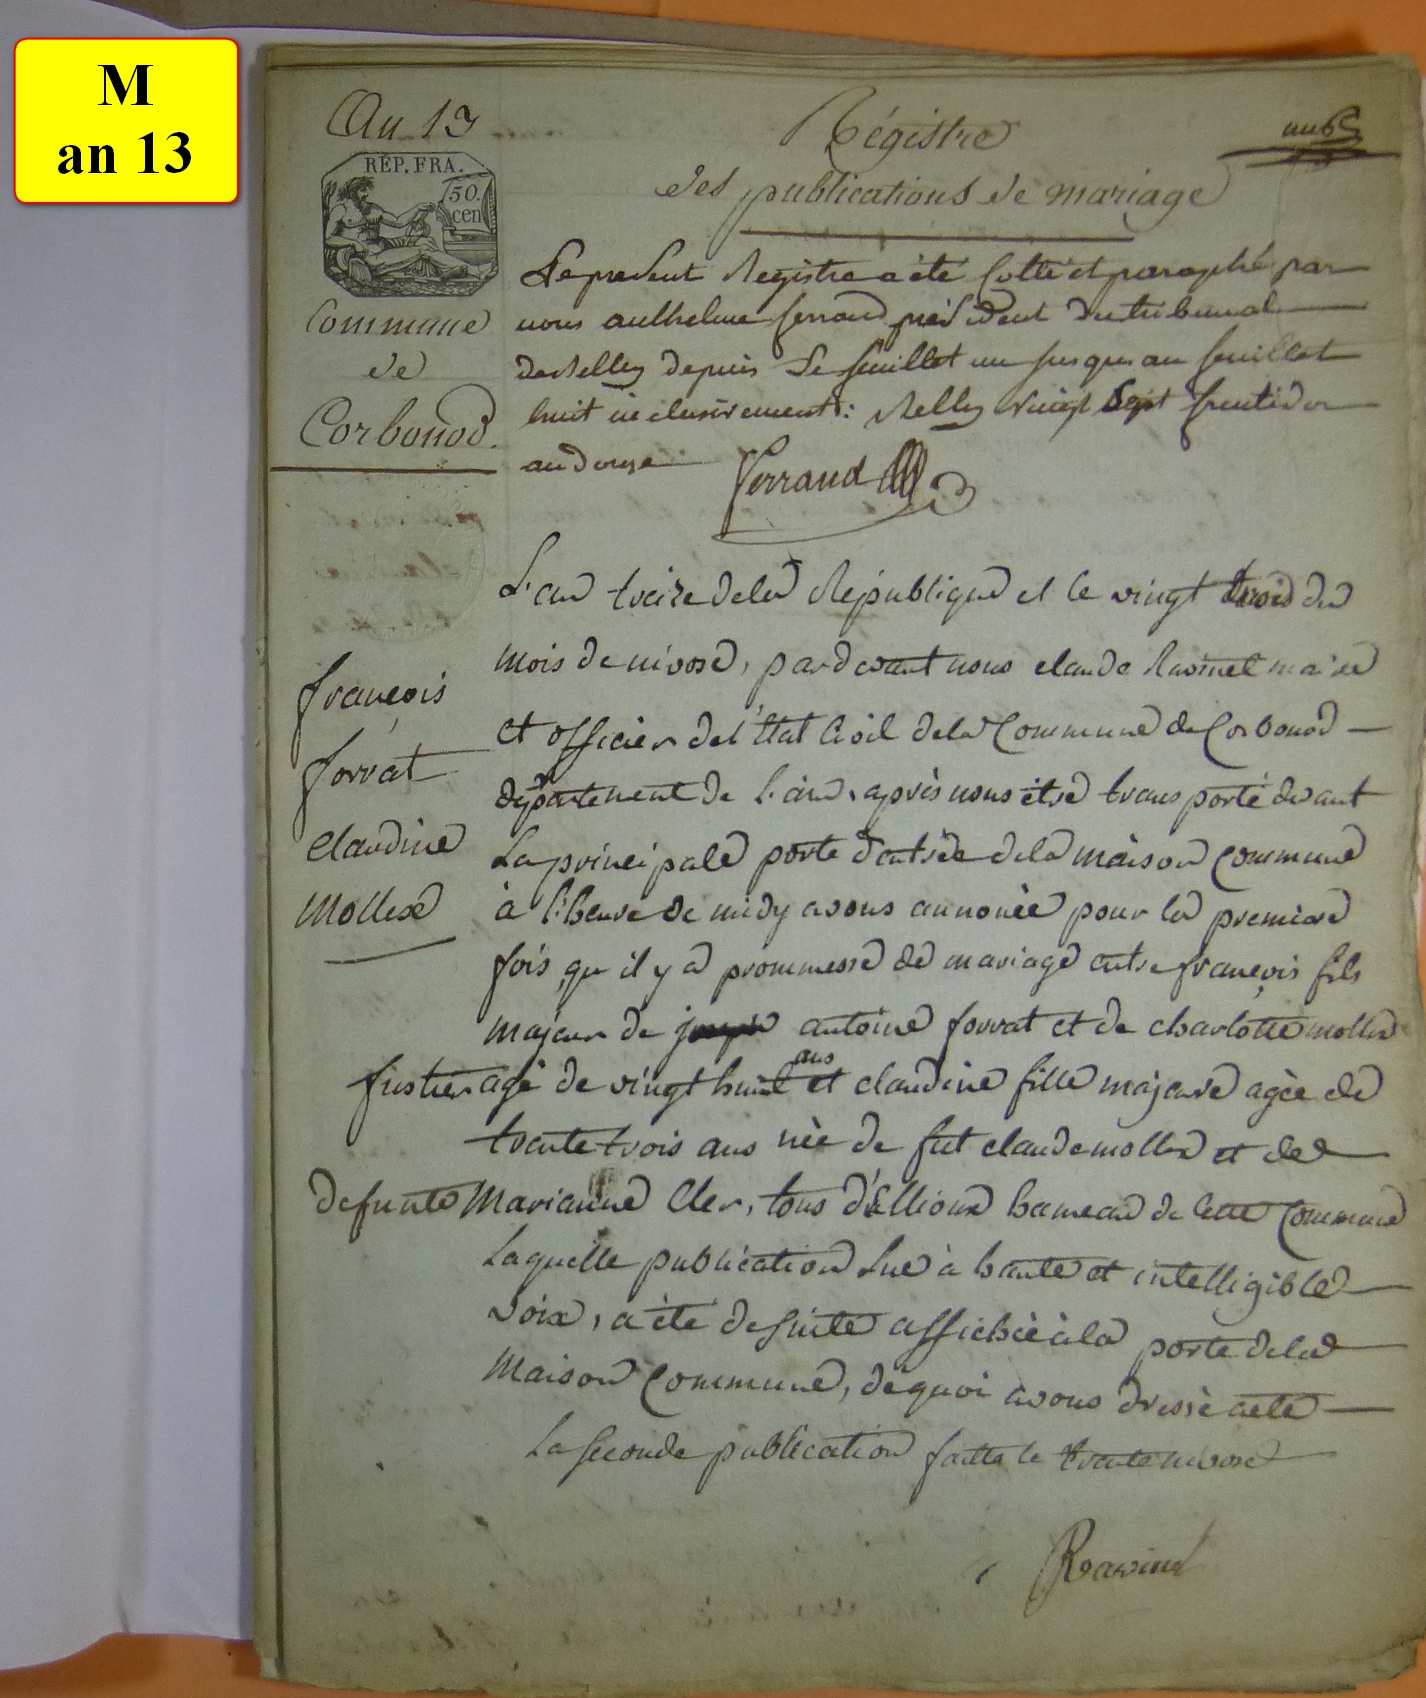 M
an 13
An 13
RÉP. FRA.
50.
cen
Commune
de
Corbonod.
Régistre
des publications de mariage
Le present Registre a été Cotté et paraphé par
nous anthelme ferrand président du tribunal
de Belley depuis Le feuillet un jusques au feuillet
huit inclusivement: Belley vingt Sept fructidor
an douze
ferrand
françois
forrat
Claudine
Mollex
L'an treize de la République et le vingt trois du
mois de nivose, pardevant nous claude Ravinet maire
et officier de l'état Civil de la Commune de Corbonod
département de l'ain, après nous être transporté devant
La principale porte d'entrée de la maison Commune
à l'heure de midy avons annoncée pour la premiere
fois, qu'il y a prommesse de mariage entre françois fils
majeur de antoine forrat et de charlotte mollex
fustier agé de vingt huit ans et claudine fille majeure agée de
trente trois ans née de fut claude mollex et de
defunte Marianne Cler, tous d'Ellioux hameau de cette Commune
Laquelle publication Lue à haute et intelligible
voix, a été de suite affichée à la porte de la
Maison Commune, de quoi avons dressé acte
La Seconde publication faitte le trente nivose
Ravinet